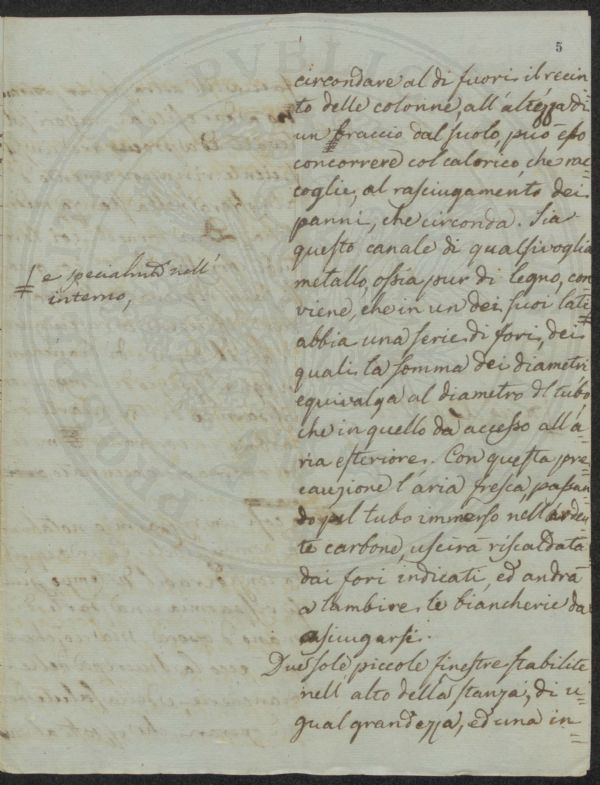 5
circondare al di fuori il recin-
to delle colonne, all'altezza di
un braccio dal suolo, può esso
concorrere col calorico, che rac-
coglie, al rasciugamento dei
panni, che circonda. Sia
questo canale di qualsivoglia
metallo, ossia pur di legno, con-
viene, che in un dei suoi lati
abbia una serie di fori, dei
quali la somma dei diametri
equivalga al diametro del tubo
che in quello dà accesso all'a-
ria esteriore. Con questa pre-
cauzione l'aria fresca, passan-
do pel tubo immerso nell'arden-
te carbone, uscirà riscaldata
dai fori indicati, ed andrà
a lambire le biancherie da
asciugarsi.
Due sole piccole finestre stabilite
nell'alto della stanza, di u-
gual grandezza, ed una in=
e specialmte nell'
interno,